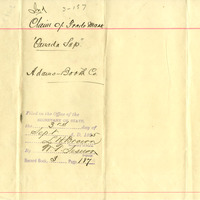 2-187
Claim of Trade Mark
"Canada Sap."
Adams-Booth Co.
Filed in the Office of the
SECRETARY OF STATE,
the 3rd day of
Sept A. D. 19
Record Book 2 Page 187